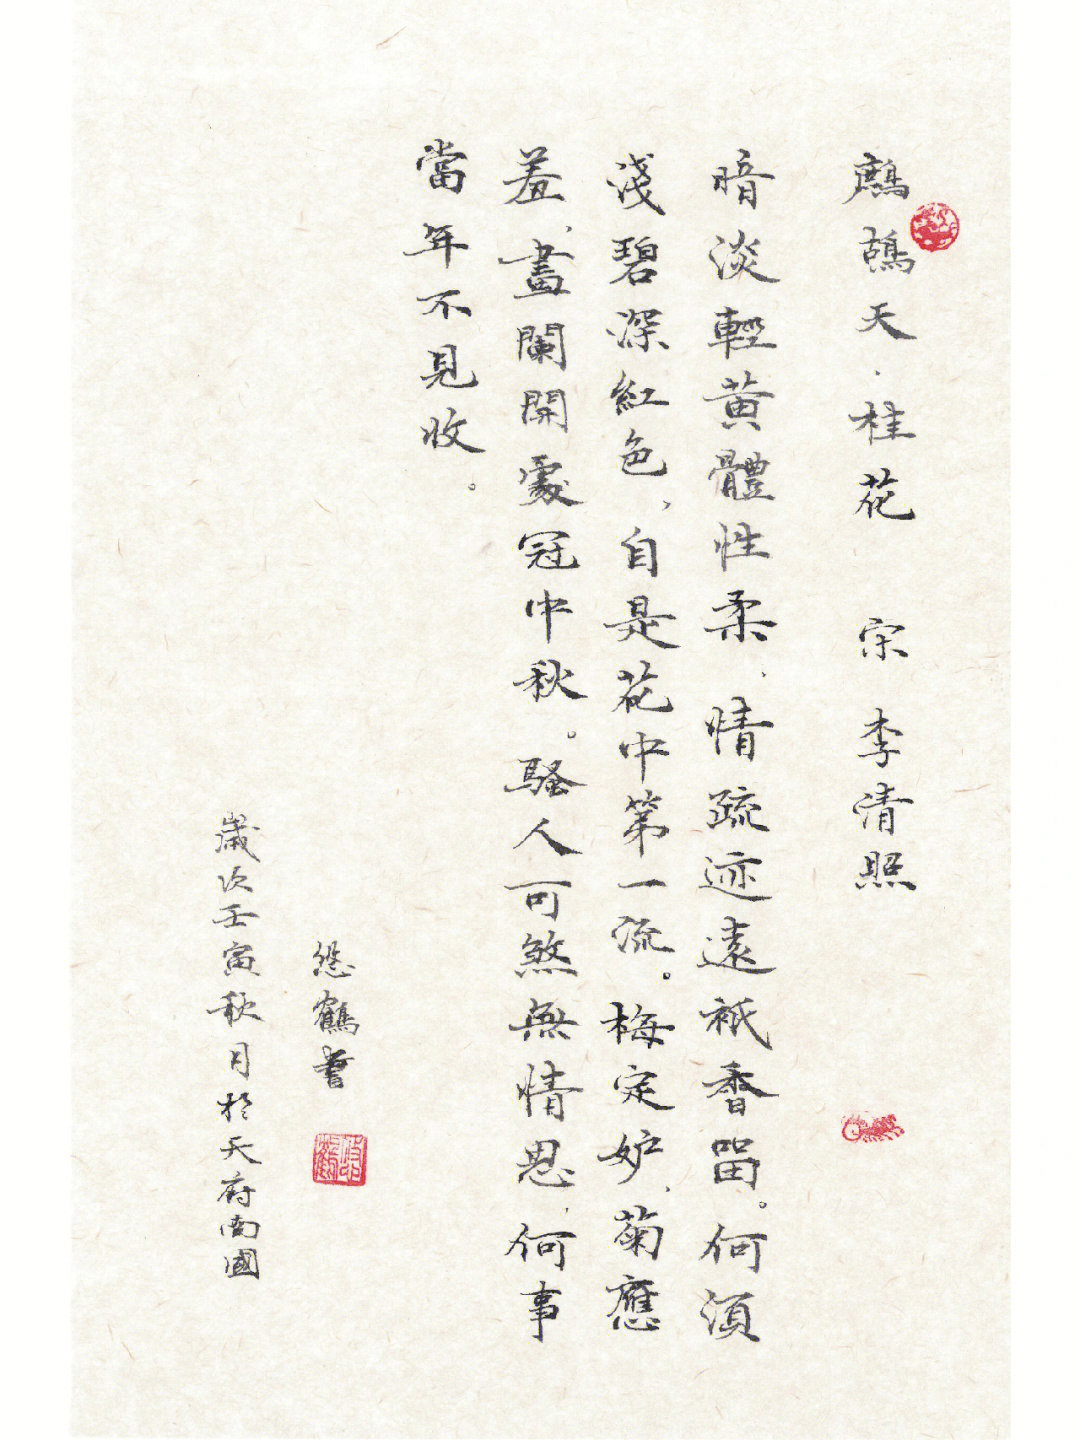 鷓鴣天·桂花 宋 李清照
暗淡輕黃體性柔、情疏迹遠衹香留。何須
淺碧深紅色、自是花中第一流。梅定妒、菊應
羞、畫闌開處冠中秋。騷人可煞無情思、何事
當年不見收。
悠鶴書
歲次壬寅秋月於天府南國